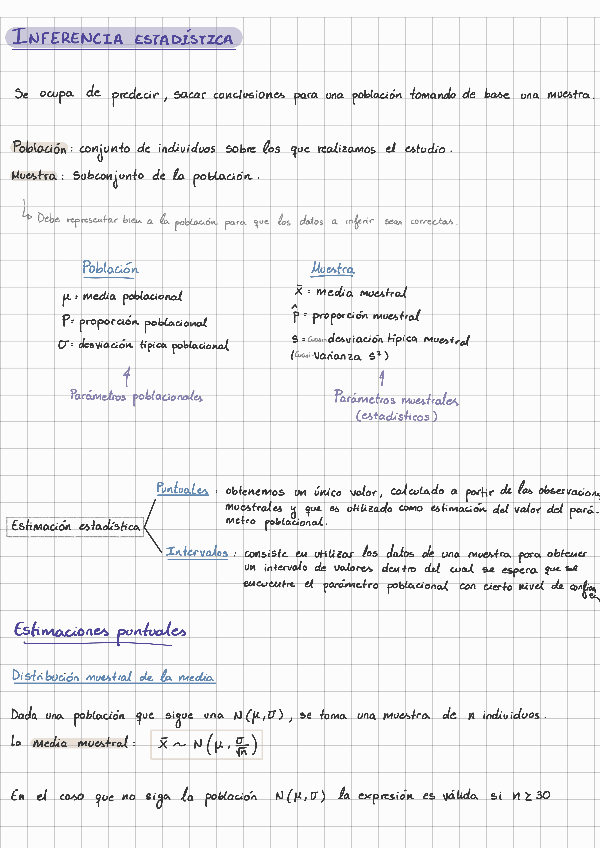 INFERENCIA ESTADÍSTICA
Se ocupa de predecir, sacar conclusiones para una población tomando de base una muestra.
Población: conjunto de individuos sobre los que realizamos el estudio.
Muestra: Subconjunto de la población.
↳ Debe representar bien a la población para que los datos a inferir sean correctas.
Población
Muestra
μ = media poblacional
x̄ = media muestral
P = proporción poblacional
p̂ = proporción muestral
σ = desviación típica poblacional
s = (cuasi-)desviación típica muestral
((cuasi-)varianza s²)
Parámetros poblacionales
Parámetros muestrales
(estadísticos)
Estimación estadística
Puntuales: obtenemos un único valor, calculado a partir de las observaciones
muestrales y que es utilizado como estimación del valor del pará-
metro poblacional.
Intervalos: consiste en utilizar los datos de una muestra para obtener
un intervalo de valores dentro del cual se espera que se
encuentre el parámetro poblacional con cierto nivel de
Estimaciones puntuales
Distribución muestral de la media
Dada una población que sigue una N(μ,σ), se toma una muestra de n individuos.
La media muestral: x̄ ~ N(μ, σ/√n)
En el caso que no siga la población N(μ,σ) la expresión es válida si n ≥ 30